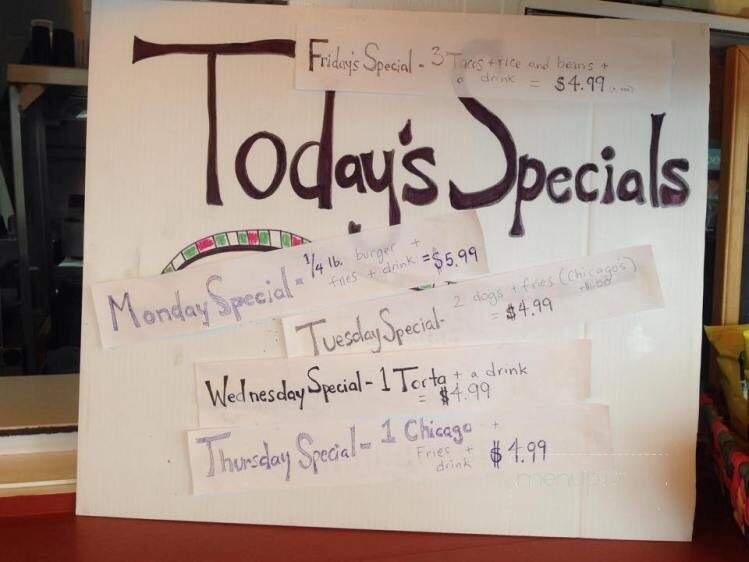 Friday's Special - 3 Tacos + rice and beans +
a drink = $4.99
Today's Specials
Monday Special = 1/4 lb. burger +
fries + drink = $5.99
Tuesday Special - 2 dogs + fries (Chicago's)
= $4.99
Wednesday Special - 1 Torta + a drink
= $4.99
Thursday Special - 1 Chicago +
Fries +
drink $4.99